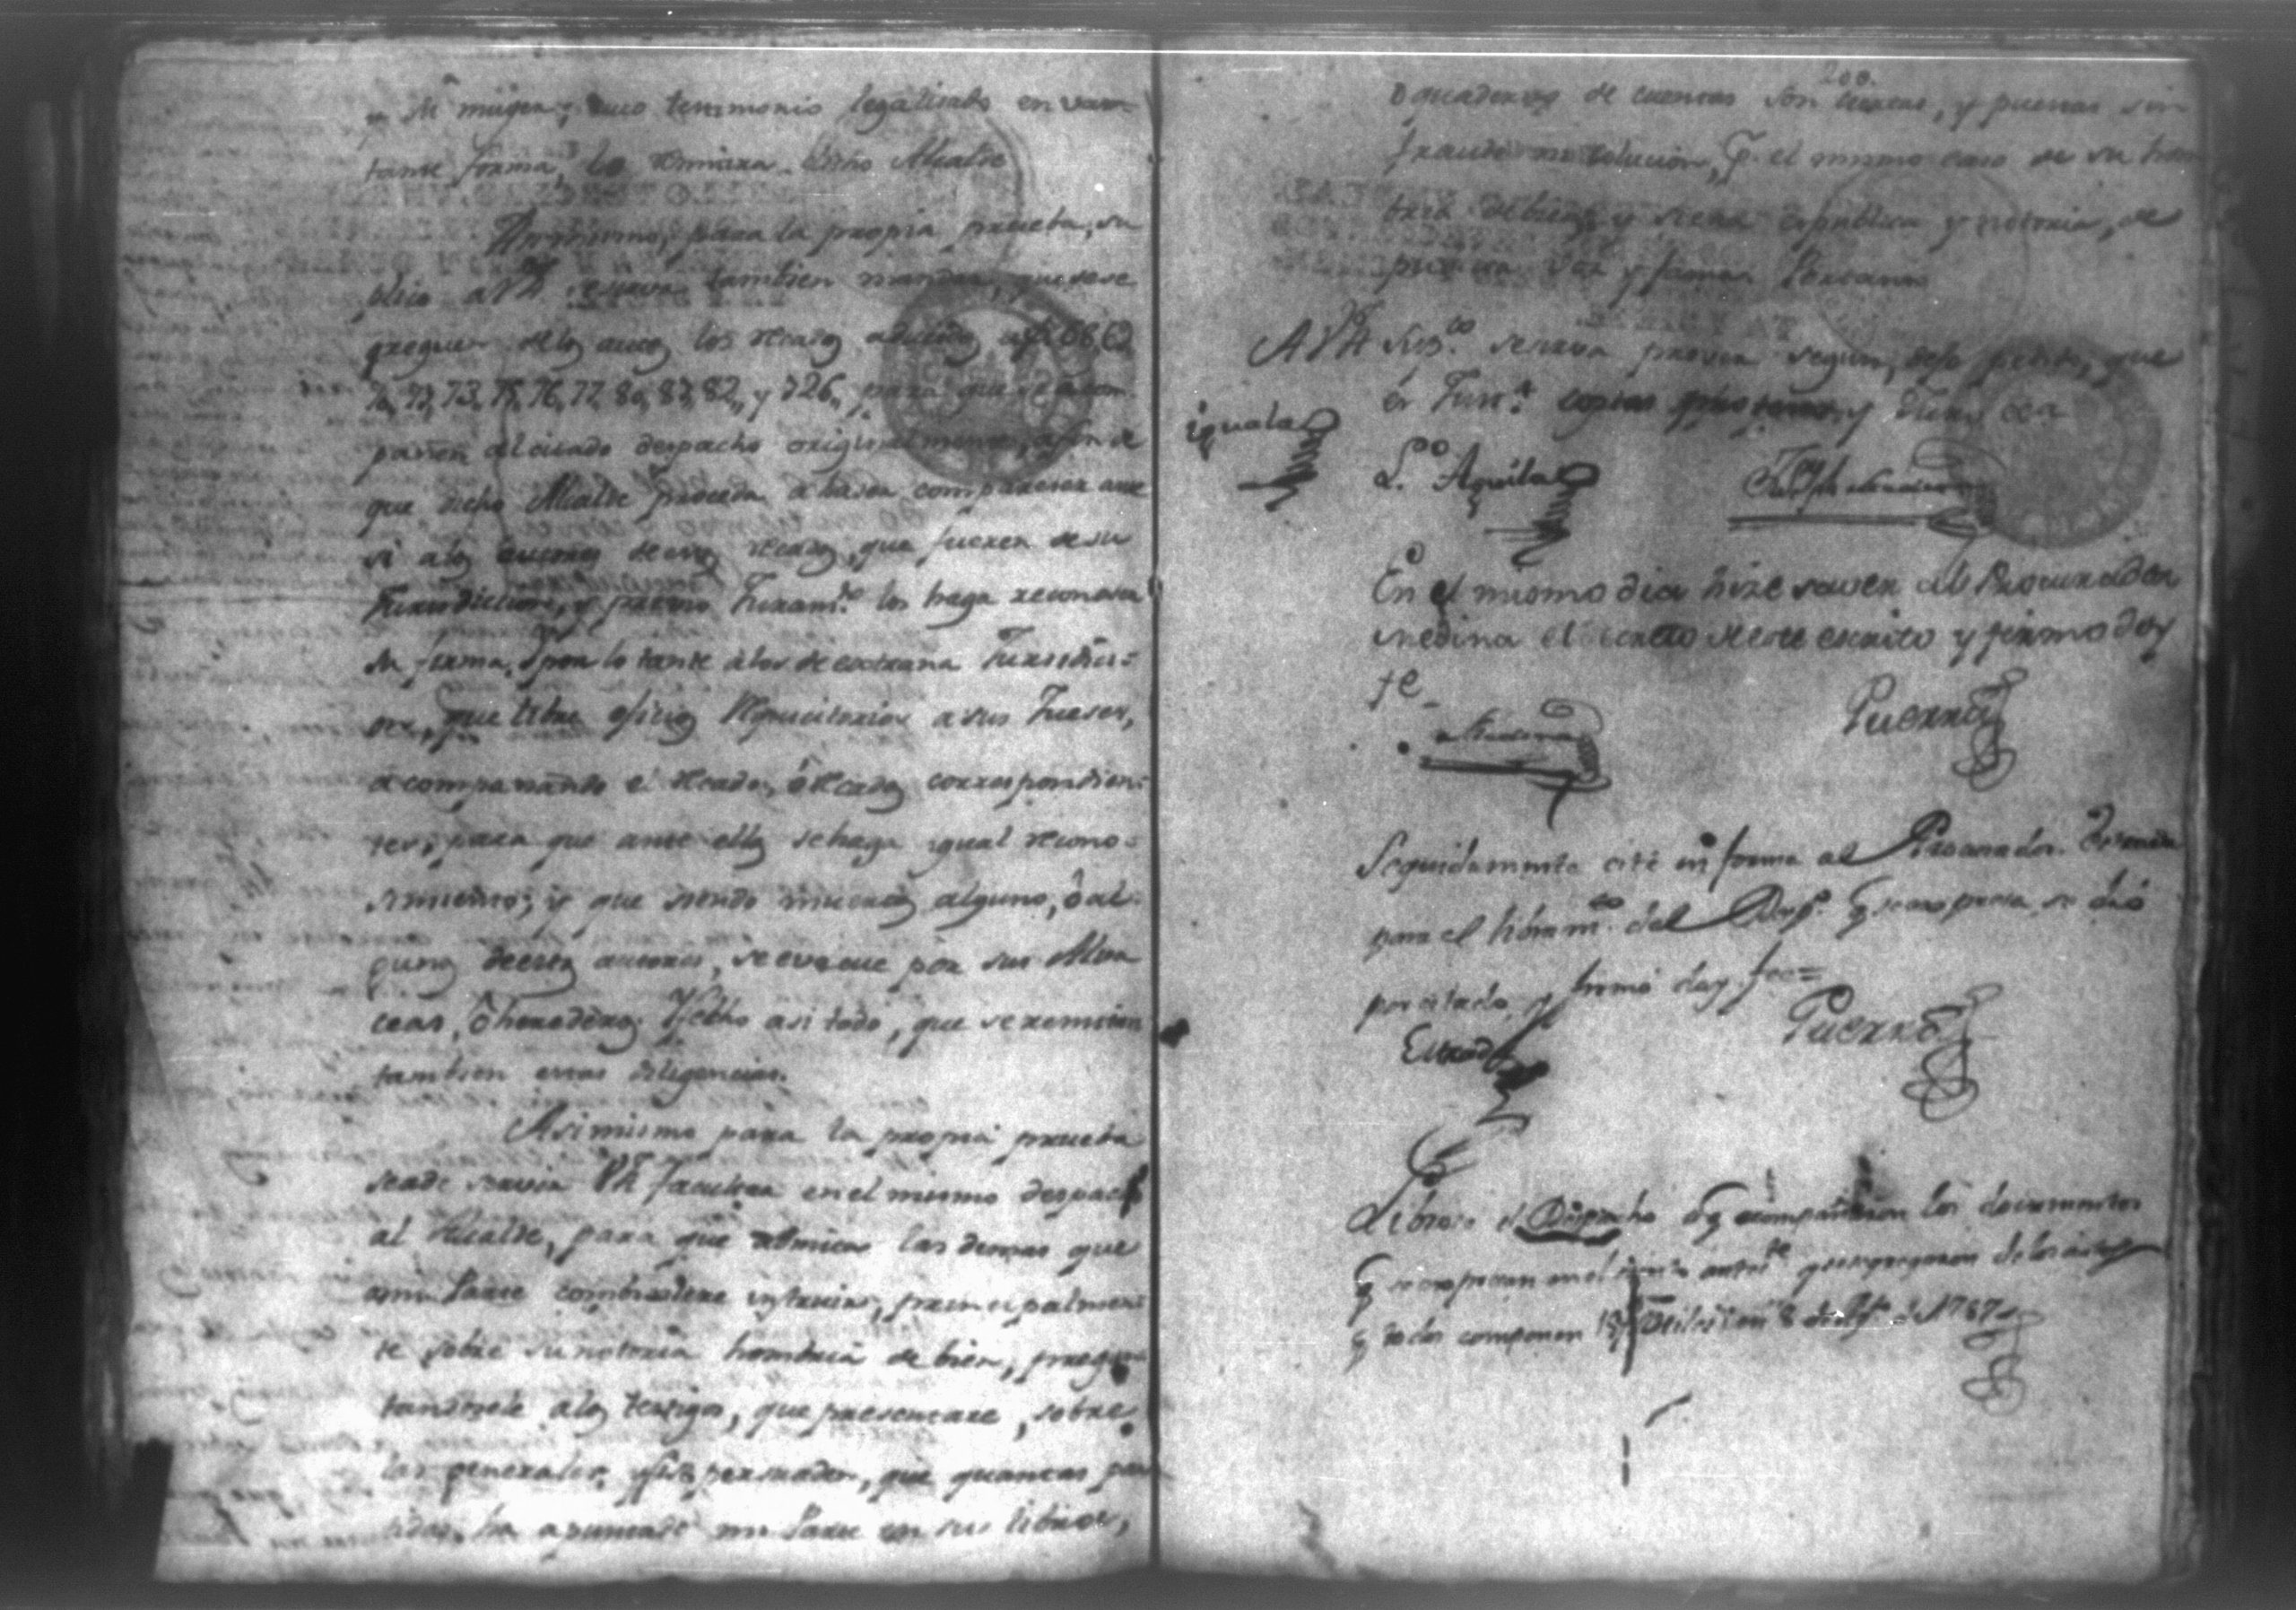 su Muger; cuio testimonio legalizado en vas-
tante forma, lo remitira dicho Alcalde
Asimismo, para la propia prueba, su
plico a VA se sirva tambien mandar, que se se
greguen de los autos los recados
73, 75, 76, 77, 80, 81, 82, y 126, para que se acom-
pañen al citado despacho originalmente, a fin de
que dicho Alcalde proceda a haser comparecer ante
si a los de esos recados, que fueren de su
Jurisdiccion, y previo Juram.to los haga reconoser
su firma, y por lo tante a los de extraña Jurisdic=
on, que libre oficios requicitorios a sus Jueses,
acompañando el recado, ô recados correspondien=
tes, para que ante ellos se haga igual recono=
simiento; y que siendo muertos alguno, ô al-
gunos de estos autores, se evaque por sus Alva
ceas, ô herederos. Y fecho asi todo, que se remitan
tambien estas diligencias.
Asimismo para la propia prueba
se ade servir VA facultar en el mismo despacho
al Alcalde, para que admita las demas que
a mi Parte combiniere instruir, principalmen-
te sobre su notoria hombria de bien, pregun-
tandosele a los testigos, que presentare, sobre
las generales, y si se persuaden, que quantas par
tidas, ha apuntado mi Parte en sus libros,
200.
o quadernos de cuentas son ciertas, y puestas sin
fraude ni colucion, p.r el mismo caso de su hom
bria de bien, y si esta es publica y notoria, de
publica voz y fama. Por tanto
A VA Sup.co se sirva proveer segun, dejo pedido, que
es Just.a
iguala
L.do Aguila
En el mismo dia hize saver al Procurador
Medina el decreto de este escrito y firmo doy
fe_
Medina
Puerta
Seguidamente cité en forma al Procurador Estrada
para el libram.to del Desp.o q.e se expresa, se dió
por citado, y firmó doy fee=
Estrada
Puerta
Librose el Despacho á q.e acompañaron los documentos
q.e se expresan en el escrito anted.te y se segregaron de los autos
q.e todos componen en 8 de Ag.to de 1787